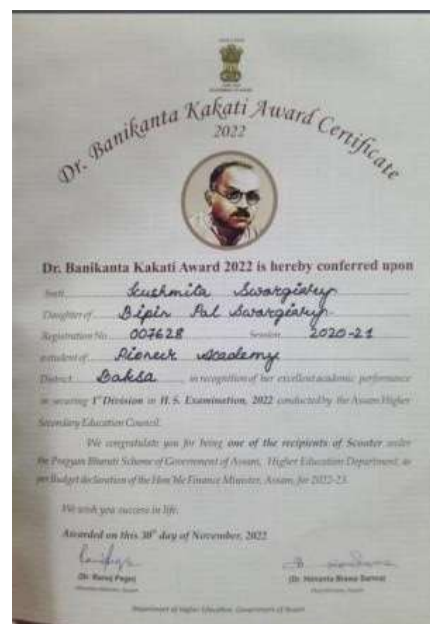 Dr. Banikanta Kakati Award Certificate
2022
Dr. Banikanta Kakati Award 2022 is hereby conferred upon
Smti Sushmita Swargiary
Daughter of Bipin Pal Swargiary
Registration No 007628 Session 2020-21
a student of Pioneer Academy
District Baksa in recognition of her excellent academic performance
in securing 1st Division in H. S. Examination, 2022 conducted by the Assam Higher
Secondary Education Council.
We congratulate you for being one of the recipients of Scooter under
the Pragyan Bharati Scheme of Government of Assam, Higher Education Department, as
per Budget declaration of the Hon'ble Finance Minister, Assam, for 2022-23.
We wish you success in life.
Awarded on this 30th day of November, 2022
(Dr. Ranoj Pegu) (Dr. Himanta Biswa Sarma)
Department of Higher Education, Government of Assam